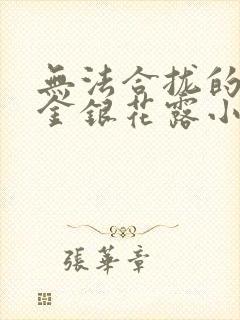 無法合拢的
金銀花露小
張華章